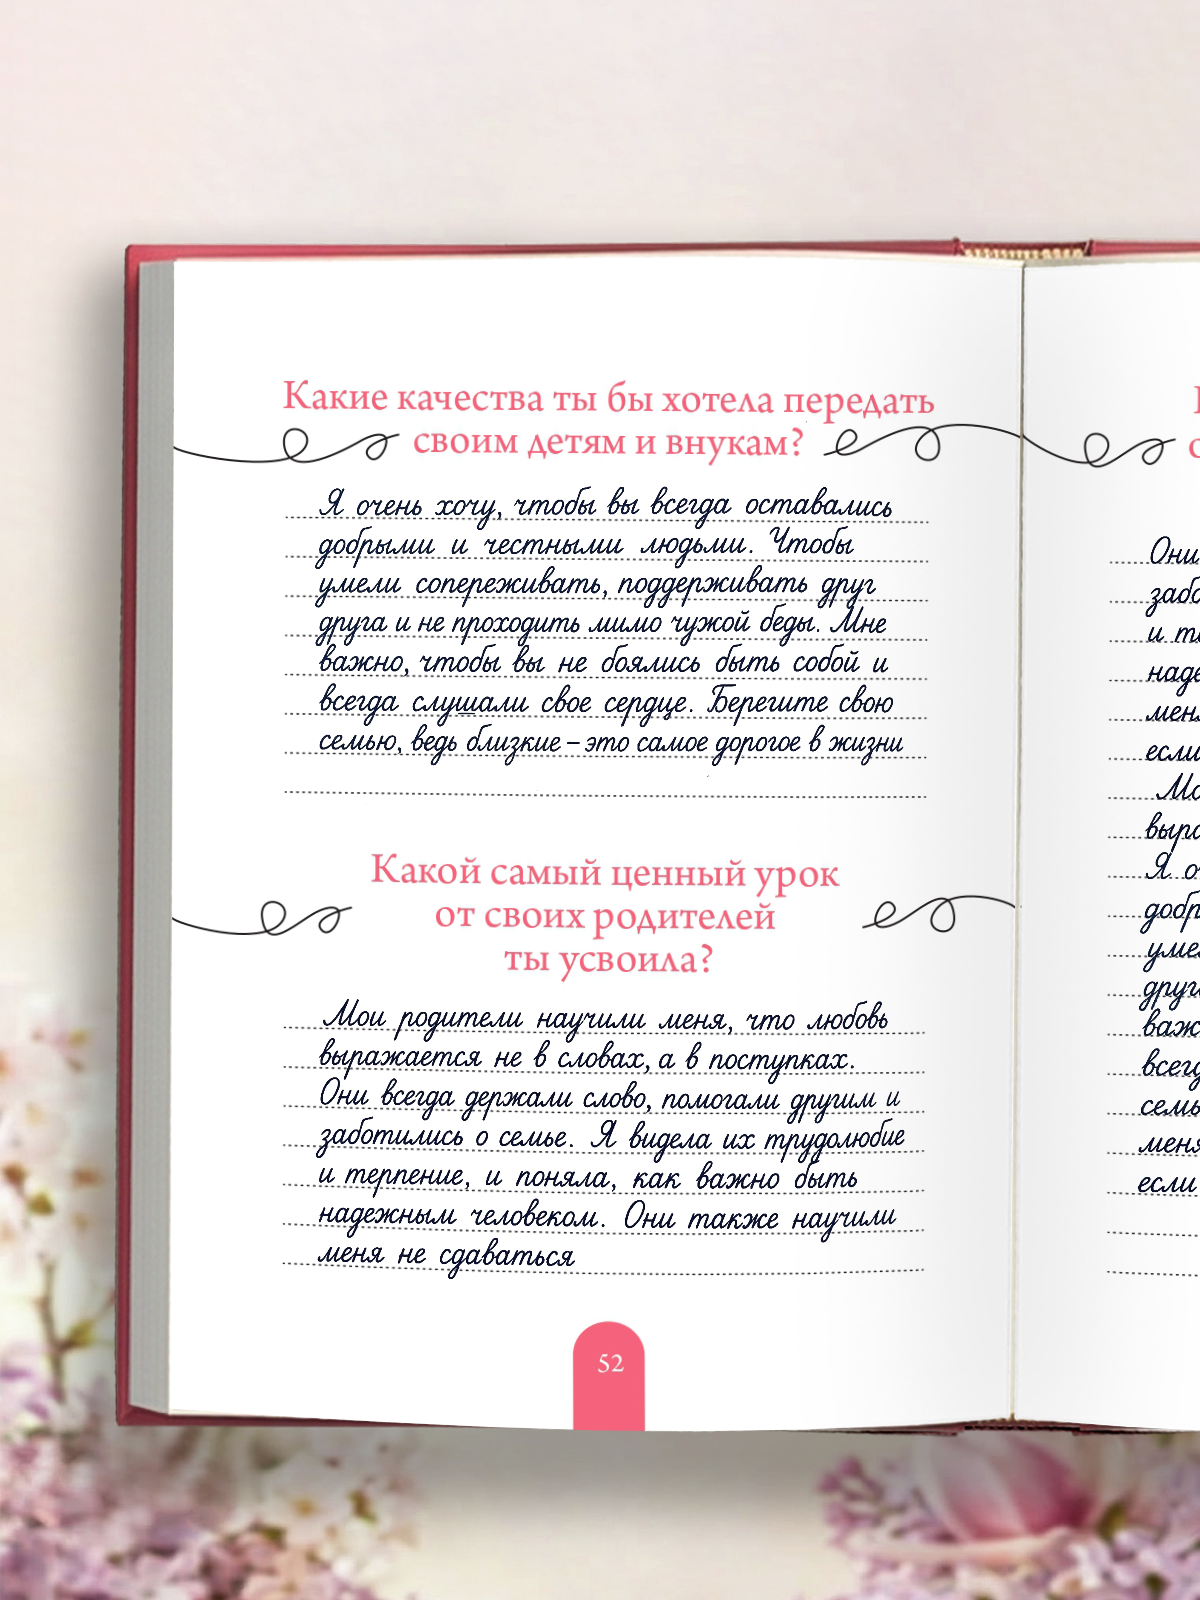 Какие качества ты бы хотела передать
своим детям и внукам?
Я очень хочу, чтобы вы всегда оставались
добрыми и честными людьми. Чтобы
умели сопереживать, поддерживать друг
друга и не проходить мимо чужой беды. Мне
важно, чтобы вы не боялись быть собой и
всегда слушали свое сердце. Берегите свою
семью, ведь близкие – это самое дорогое в жизни
Какой самый ценный урок
от своих родителей
ты усвоила?
Мои родители научили меня, что любовь
выражается не в словах, а в поступках.
Они всегда держали слово, помогали другим и
заботились о семье. Я видела их трудолюбие
и терпение, и поняла, как важно быть
надежным человеком. Они также научили
меня не сдаваться
52
Они
и
если
Я
меня
если